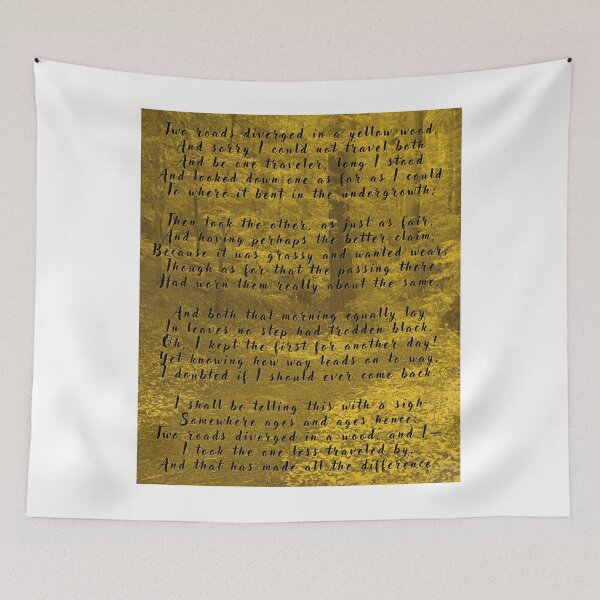 Two roads diverged in a yellow wood,
And sorry I could not travel both
And be one traveler, long I stood
And looked down one as far as I could
To where it bent in the undergrowth;
Then took the other, as just as fair,
And having perhaps the better claim,
Because it was grassy and wanted wear;
Though as for that the passing there
Had worn them really about the same,
And both that morning equally lay
In leaves no step had trodden black.
Oh, I kept the first for another day!
Yet knowing how way leads on to way,
I doubted if I should ever come back
I shall be telling this with a sigh
Somewhere ages and ages hence:
Two roads diverged in a wood, and I
I took the one less traveled by,
And that has made all the difference.